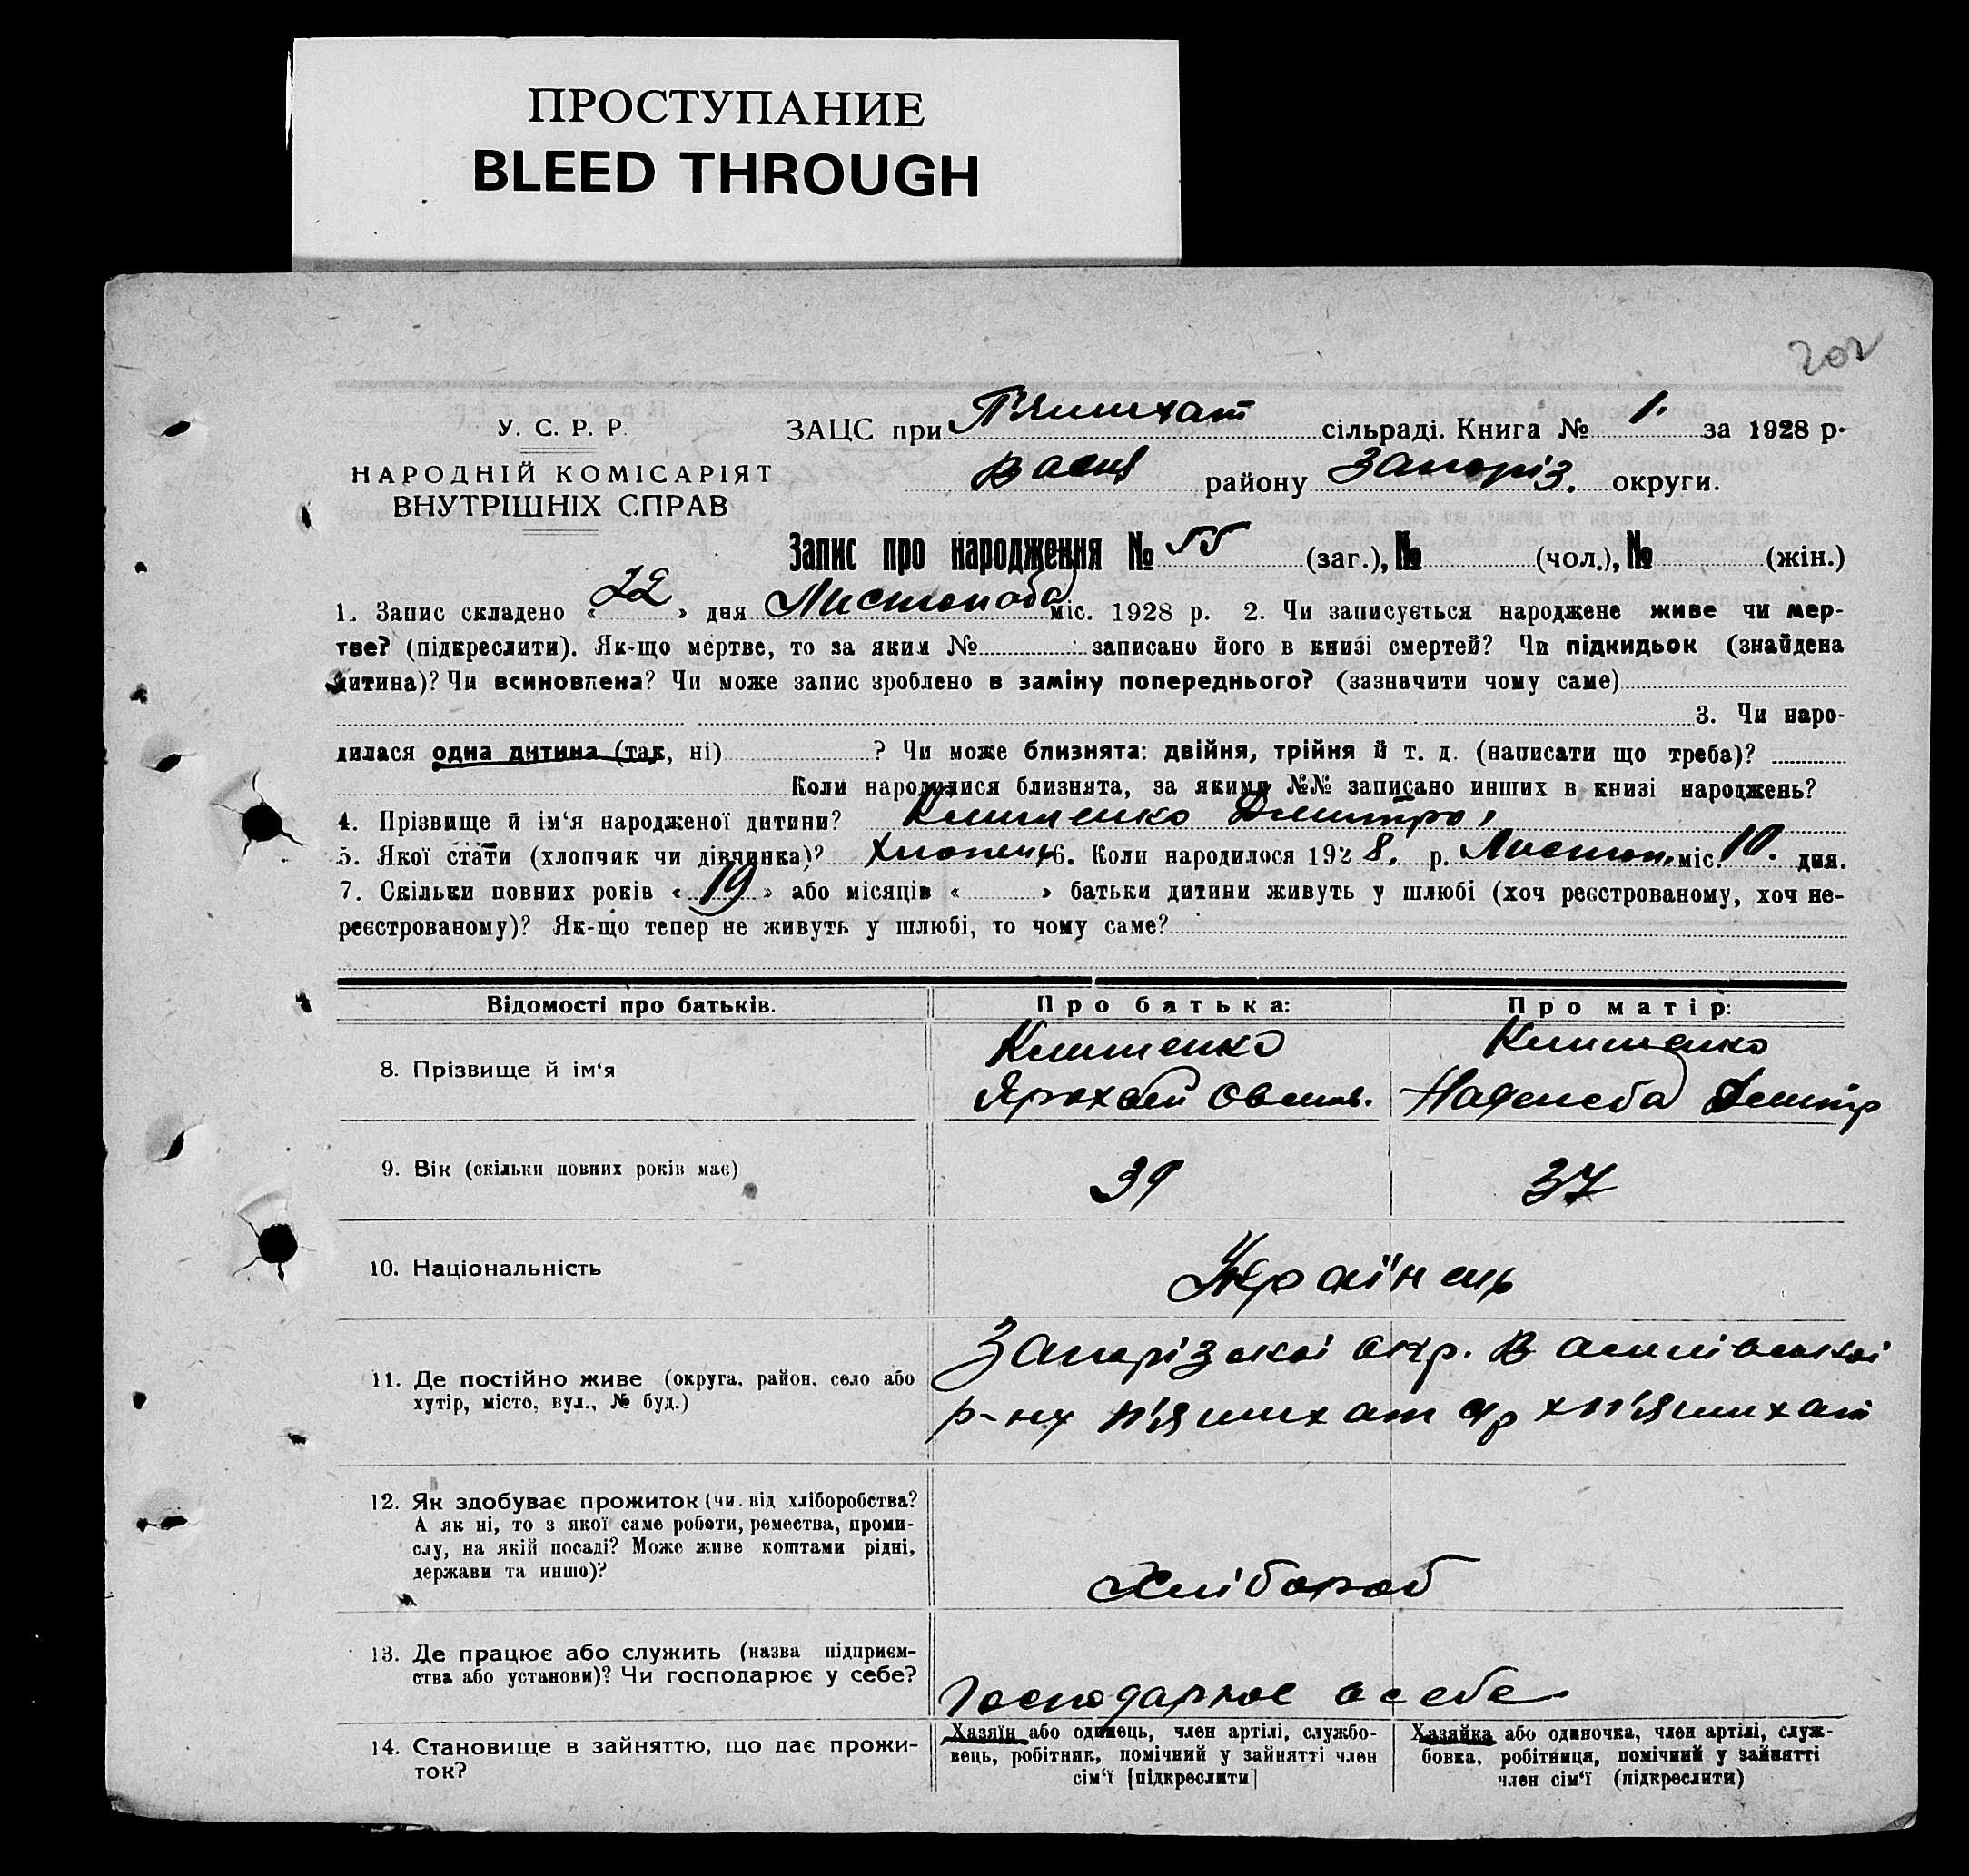 ПРОСТУПАНИЕ
BLEED THROUGH
202
У. С. Р. Р.
НАРОДНІЙ КОМІСАРІЯТ
ВНУТРІШНІХ СПРАВ
ЗАЦС при П'ятихат сільраді. Книга № 1. за 1928 р.
Васил району Запоріз. округи.
Запис про народження № 55 (заг.), № (чол.), № (жін.)
1. Запис складено «22» дня Листопада міс. 1928 р. 2. Чи записується народжене живе чи мер-
тве? (підкреслити). Як-що мертве, то за яким № записано його в книзі смертей? Чи підкидьок (знайдена
дитина)? Чи всиновлена? Чи може запис зроблено в заміну попереднього? (зазначити чому саме)
3. Чи наро-
дилася одна дитина (так, ні) ? Чи може близнята: двійня, трійня й т. д. (написати що треба)?
Коли народилися близнята, за якими №№ записано инших в книзі народжень?
4. Прізвище й ім‘я народженої дитини? Клименко Дмитро,
5. Якої стати (хлопчик чи дівчинка)? Хлопець 6. Коли народилося 1928. р. Листоп. міс. 10. дня.
7. Скільки повних років «19» або місяців « » батьки дитини живуть у шлюбі (хоч реєстрованому, хоч не-
реєстрованому)? Як-що тепер не живуть у шлюбі, то чому саме?
Відомості про батьків. Про батька: Про матір:
8. Прізвище й ім‘я
Клименко Клименко
Дмитр
9. Вік (скільки повних років має) 39 37
10. Національність Українець
11. Де постійно живе (округа, район, село або
хутір, місто, вул., № буд.)
Запорізскої окр. Василівської
р-ну п'ятихат ср х п'ятихат
12. Як здобуває прожиток (чи від хліборобства?
А як ні, то з якої саме роботи, ремества, проми-
слу, на якій посаді? Може живе коштами рідні,
держави та иншо)?
Хлібороб
13. Де працює або служить (назва підприєм-
ства або установи)? Чи господарює у себе?
Господарює в себе
14. Становище в зайняттю, що дає прожи-
ток?
Хазяїн або одинець, член артілі, службо-
вець, робітник, помічний у зайнятті член
сім‘ї [підкреслити]
Хазяйка або одиночка, член артілі, служ-
бовка, робітниця, помічний у зайнятті
член сім‘ї (підкреслити)